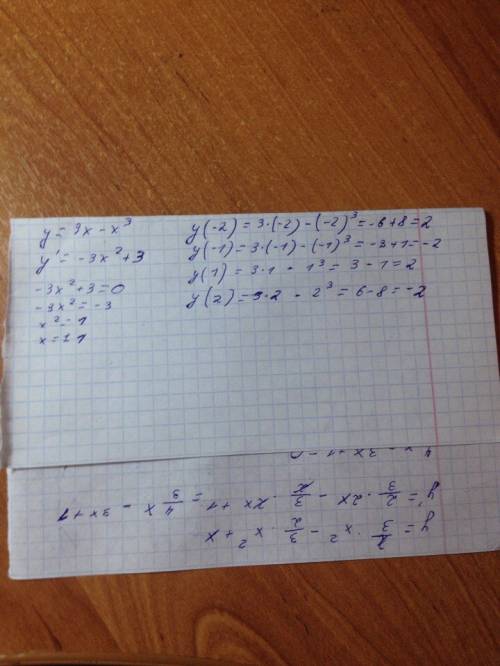 y = 3x - x³
y' = -3x² + 3
-3x² + 3 = 0
-3x² = -3
x² = 1
x = ±1
y(-2) = 3·(-2) - (-2)³ = -6 + 8 = 2
y(-1) = 3·(-1) - (-1)³ = -3 + 1 = -2
y(1) = 3·1 - 1³ = 3 - 1 = 2
y(2) = 3·2 - 2³ = 6 - 8 = -2
y = 2/3 · x² - 3/2 · x² + x
y' = 2/3 · 2x - 3/2 · 2x + 1 = 4/3 x - 3x + 1